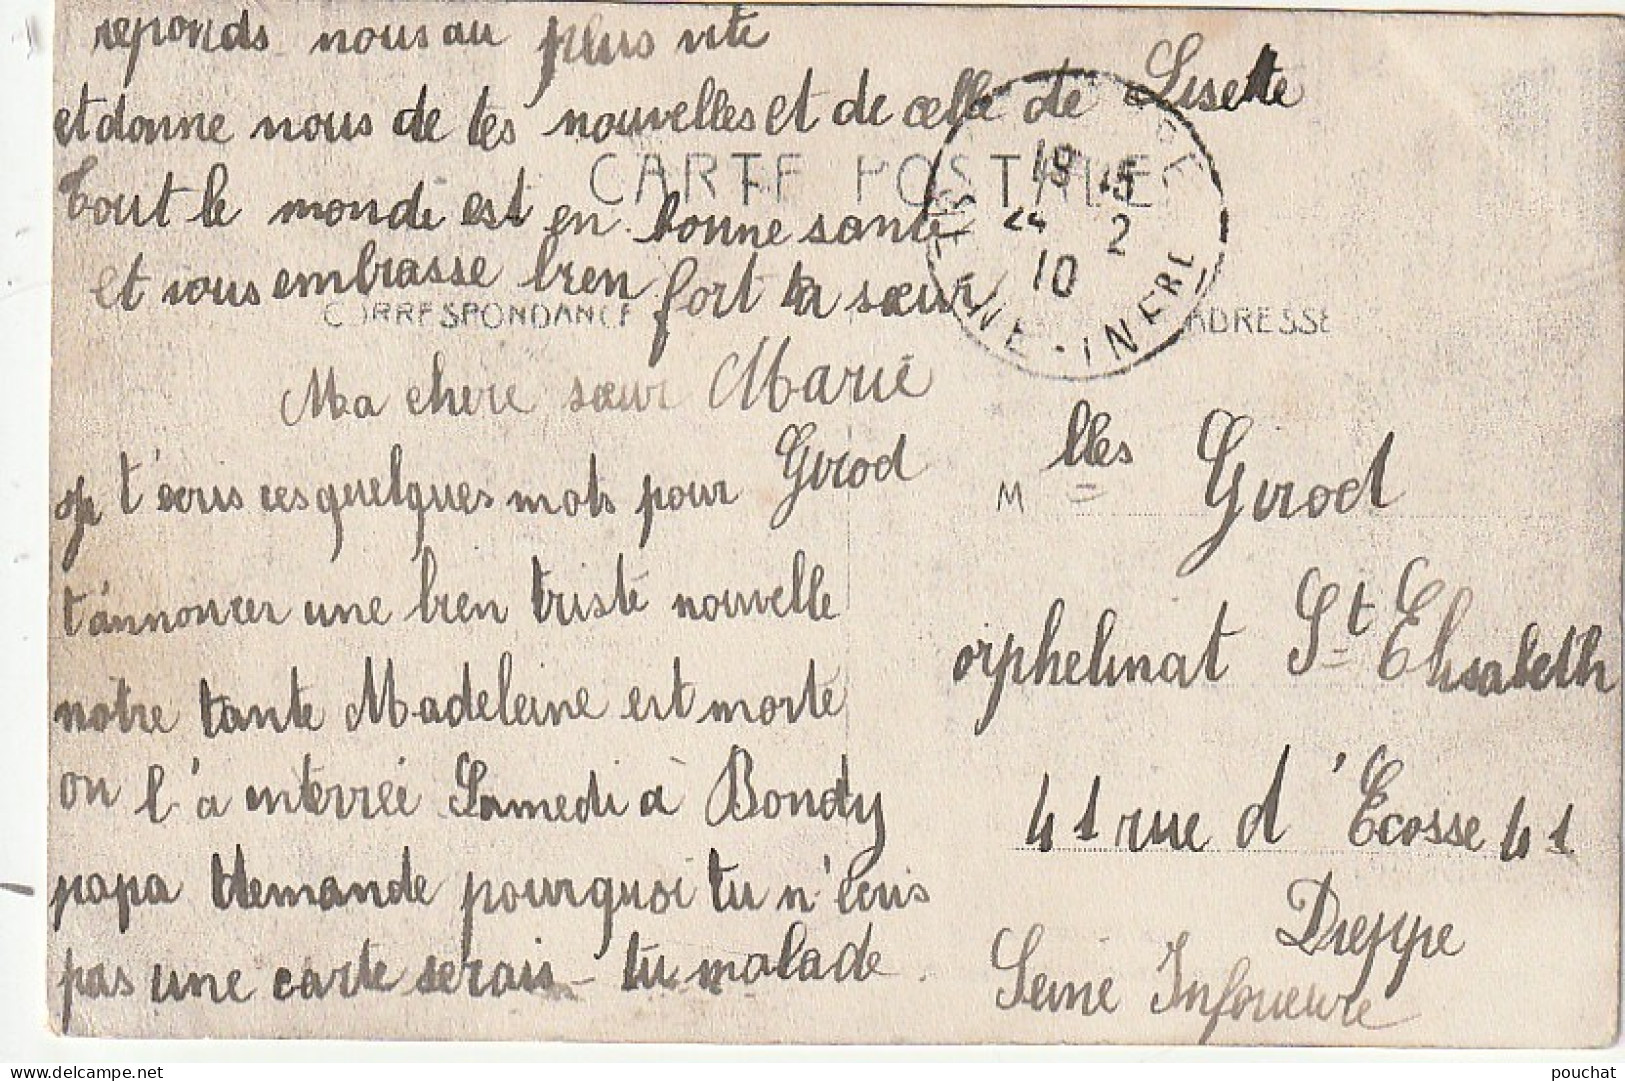 reponds nous au plus vite
et donne nous de tes nouvelles et de celle de Lisette
CARTE POSTALE
Tout le monde est en bonne santé
et vous embrasse bien fort ta sœur
CORRESPONDANCE
ADRESSE
19 15
24 2
10
SEINE - INFRE
Ma chere sœur Marie
Girod
je t'écris ces quelques mots pour
t'annoncer une bien triste nouvelle
notre tante Madeleine est morte
on l'a enterrée Samedi à Bondy
papa demande pourquoi tu n'écris
pas une carte serais-tu malade
M lles Girod
orphelinat St Elisabeth
41 rue d'Ecosse 41
Dieppe
Seine Inferieure
pouchat